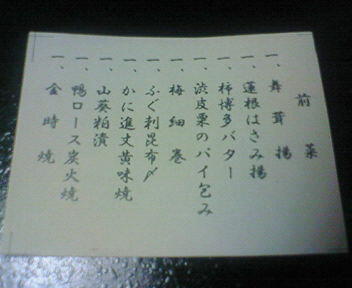 前菜
一、舞茸揚
一、蓮根はさみ揚
一、柿博多バター
一、渋皮栗のパイ包み
一、梅細巻
一、ふぐ刺昆布〆
一、かに進丈黄味焼
一、山葵粕漬
一、鴨ロース炭火焼
一、金時焼